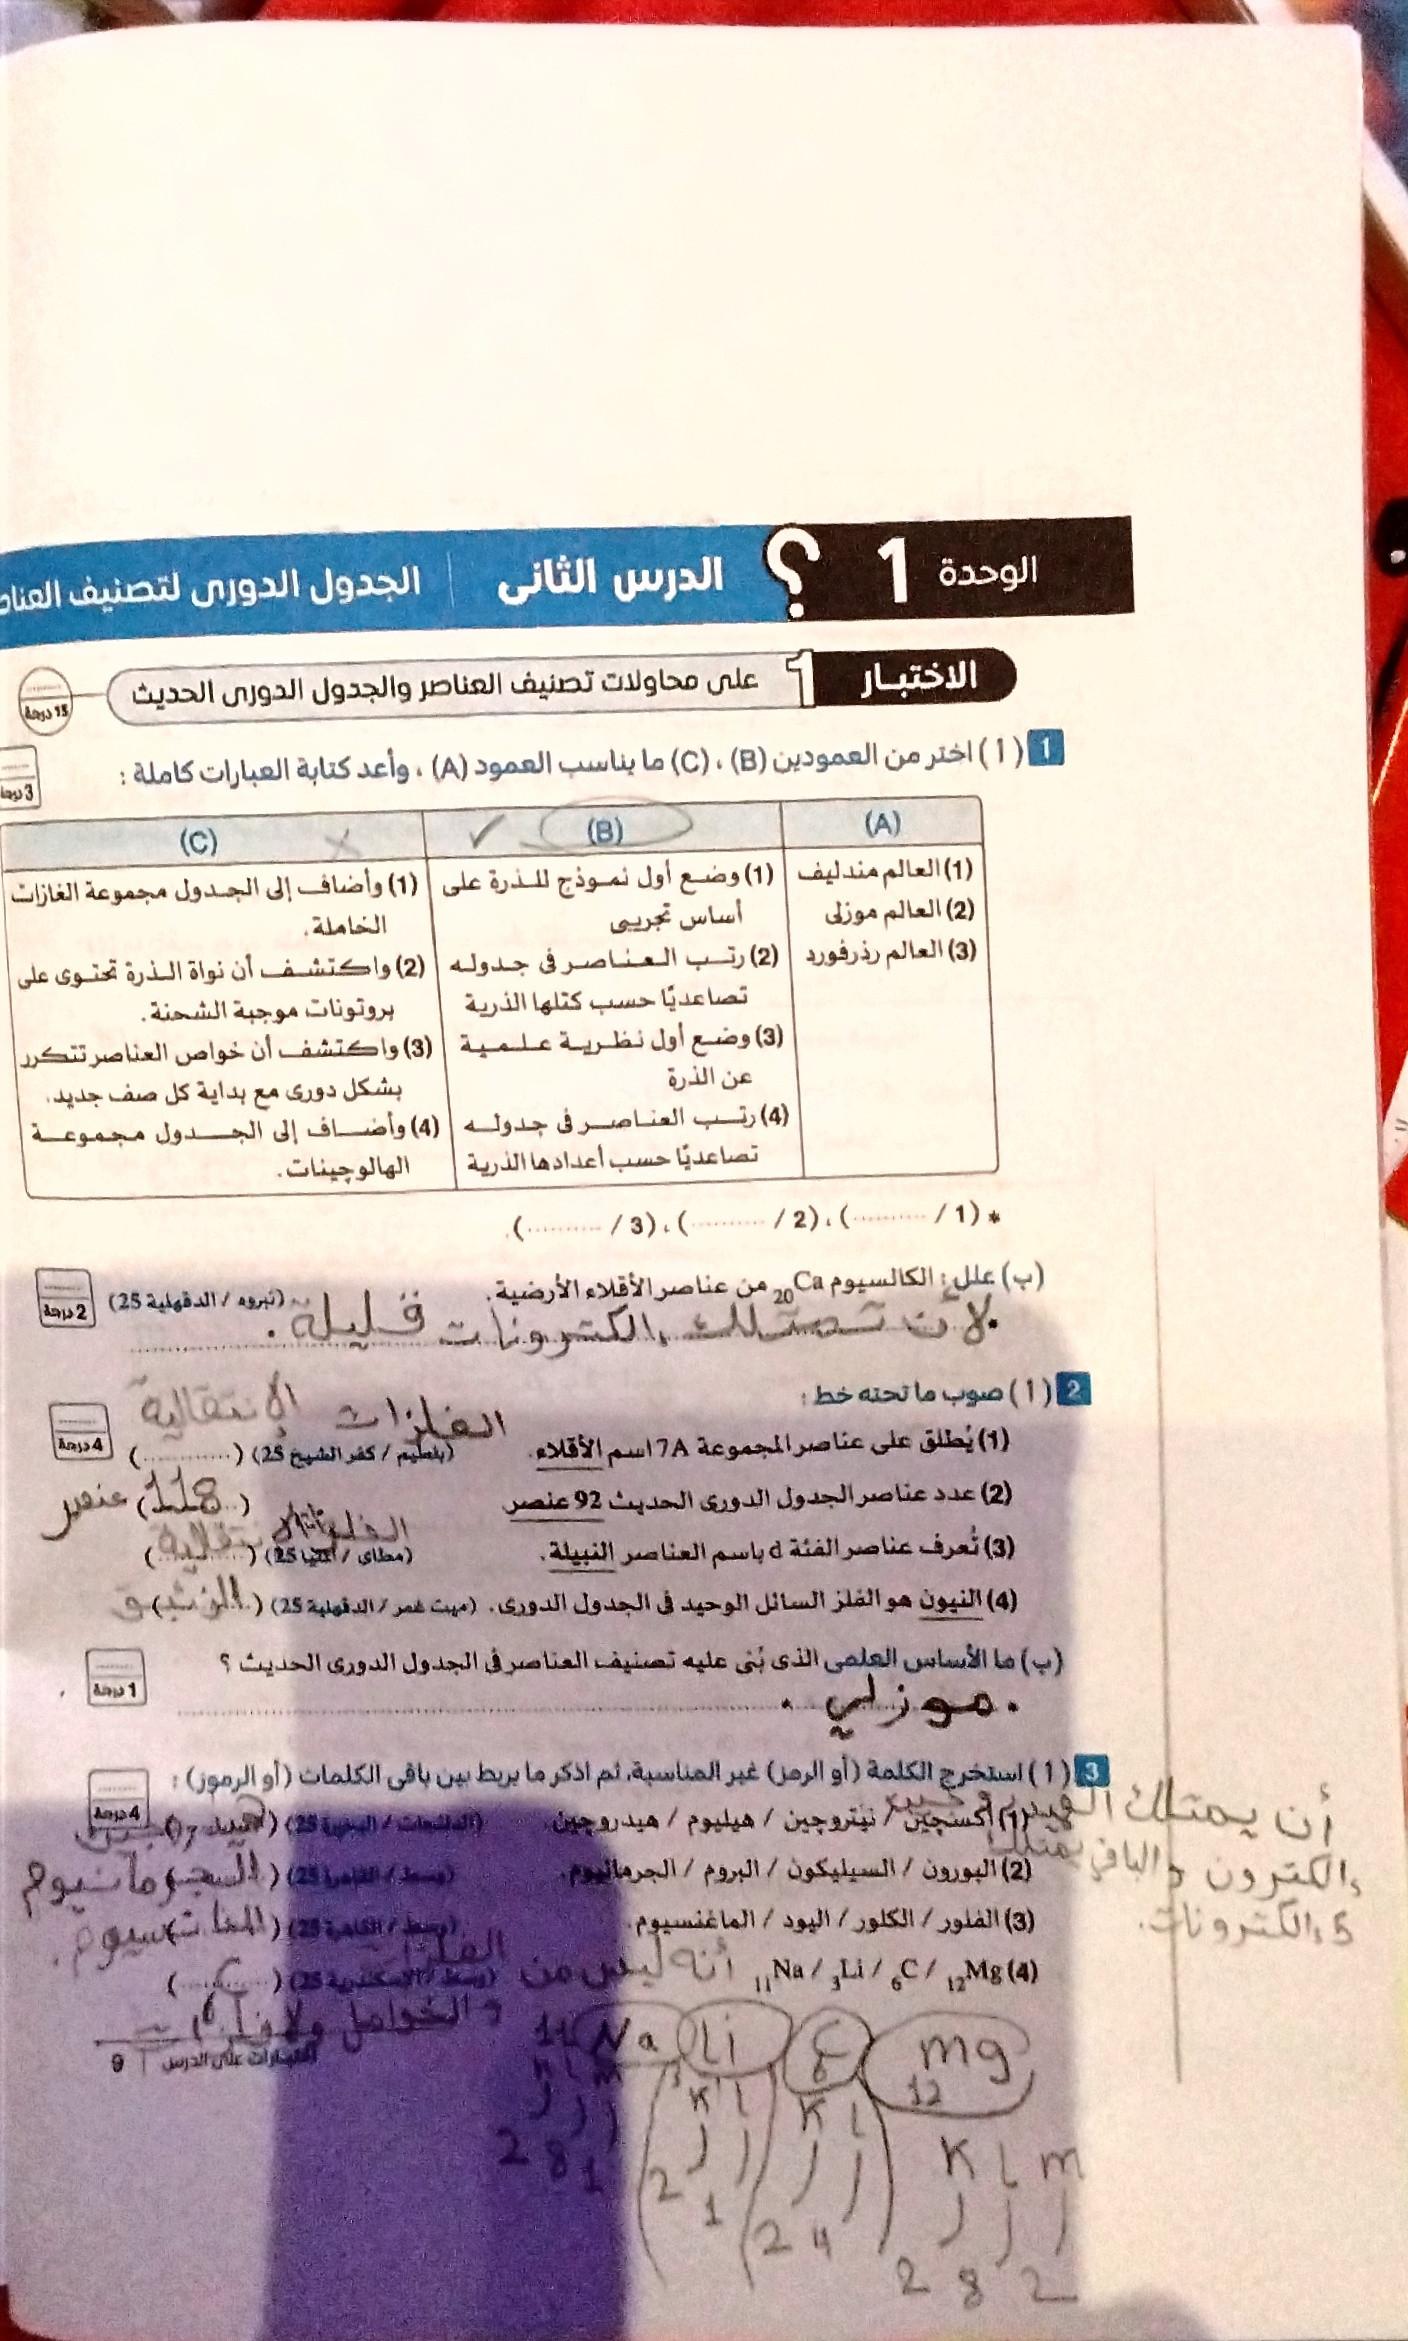 الوحدة 1 ؟ الدرس الثانى | الجدول الدورى لتصنيف العناص
الاختبار 1 على محاولات تصنيف العناصر والجدول الدورى الحديث
15 درجة
1 (أ) اختر من العمودين (B) ، (C) ما يناسب العمود (A) ، وأعد كتابة العبارات كاملة :
3 درجة
(A) (B) ✓ (C) ×
(1) العالم مندليف
(2) العالم موزلى
(3) العالم رذرفورد
(1) وضع أول نموذج للذرة على
أساس تجريبى
(2) رتب العناصر فى جدوله
تصاعديًا حسب كتلها الذرية
(3) وضع أول نظرية علمية
عن الذرة
(4) رتب العناصر فى جدوله
تصاعديًا حسب أعدادها الذرية
(1) وأضاف إلى الجدول مجموعة الغازات
الخاملة.
(2) واكتشف أن نواة الذرة تحتوى على
بروتونات موجبة الشحنة.
(3) واكتشف أن خواص العناصر تتكرر
بشكل دورى مع بداية كل صف جديد.
(4) وأضاف إلى الجدول مجموعة
الهالوچينات.
* (1 / ..........) ، (2 / ..........) ، (3 / ..........).
(ب) علل : الكالسيوم 20Ca من عناصر الأقلاء الأرضية. (نبروه / الدقهلية 25)
2 درجة
لأن تمتلك إلكترونات قليلة.
2 (أ) صوب ما تحته خط :
4 درجة
الفلزات الإنتقالية
(1) يُطلق على عناصر المجموعة 7A اسم الأقلاء. (بلطيم / كفر الشيخ 25) (............)
(2) عدد عناصر الجدول الدورى الحديث 92 عنصر (118) عنصر
الإنتقالية
(3) تُعرف عناصر الفئة d باسم العناصر النبيلة. (مطاى / المنيا 25) (............)
(4) النيون هو الفلز السائل الوحيد فى الجدول الدورى. (ميت غمر / الدقهلية 25) (الزئبق)
(ب) ما الأساس العلمى الذى بُنى عليه تصنيف العناصر فى الجدول الدورى الحديث ؟
1 درجة
موزلي .
3 (أ) استخرج الكلمة (أو الرمز) غير المناسبة، ثم اذكر ما يربط بين باقى الكلمات (أو الرموز) :
4 درجة
(1) أكسچين / نيتروچين / هيليوم / هيدروچين. (الدلنجات / البحيرة 25)
(2) البورون / السيليكون / البروم / الجرمانيوم. (وسط / القاهرة 25)
(3) الفلور / الكلور / اليود / الماغنسيوم. (وسط / القاهرة 25)
(4) 12Mg / 6C / 3Li / 11Na (وسط / الإسكندرية 25) (C)
أن يمتلك الهيدروجين
إلكترون والباقي يمتلك
5 إلكترونات.
أنه ليس من الفلزات
والخوامل
اختبارات على الدرس | 9
11 Na Li C 6 mg 12
K L M K L K L K L m
2 8 1 2 1 2 4 2 8 2